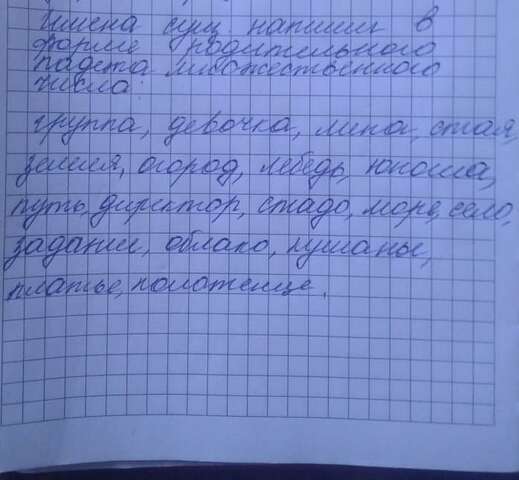 Имена сущ. напиши в
форме родительного
падежа множественного
числа:
группа, девочка, липа, стая,
земля, огород, лебедь, юноша,
путь, директор, стадо, море, село,
задание, облако, кушанье,
платье, полотенце.